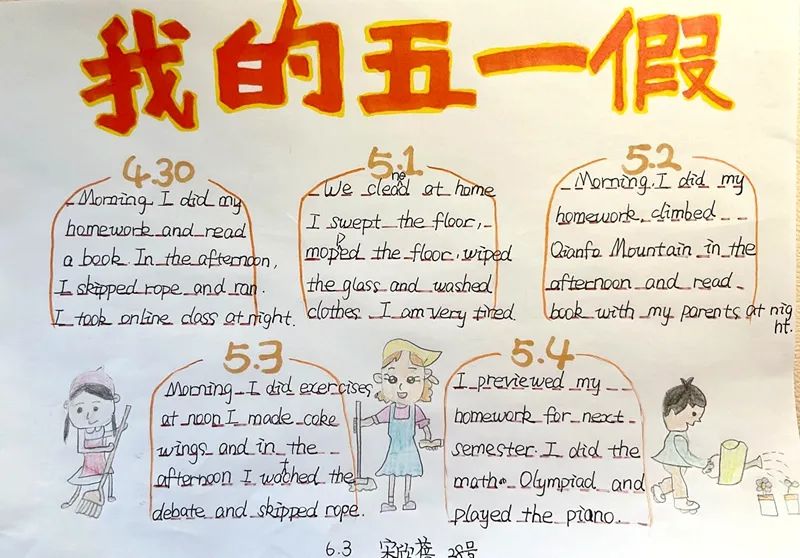 我的五一假
4.30
Morning I did my
homework and read
a book. In the afternoon,
I skipped rope and ran.
I took online class at night.
5.1
We cleaned at home
I swept the floor,
mopped the floor, wiped
the glass and washed
clothes. I am very tired.
5.2
Morning, I did my
homework climbed
Qianfo Mountain in the
afternoon and read
book with my parents at nig
ht.
5.3
Morning I did exercises,
at noon I made coke
wings and in the
afternoon I watched the
debate and skipped rope.
5.4
I previewed my
homework for next
semester. I did the
math Olympiad and
played the piano.
6.3 宋欣蓓 28号